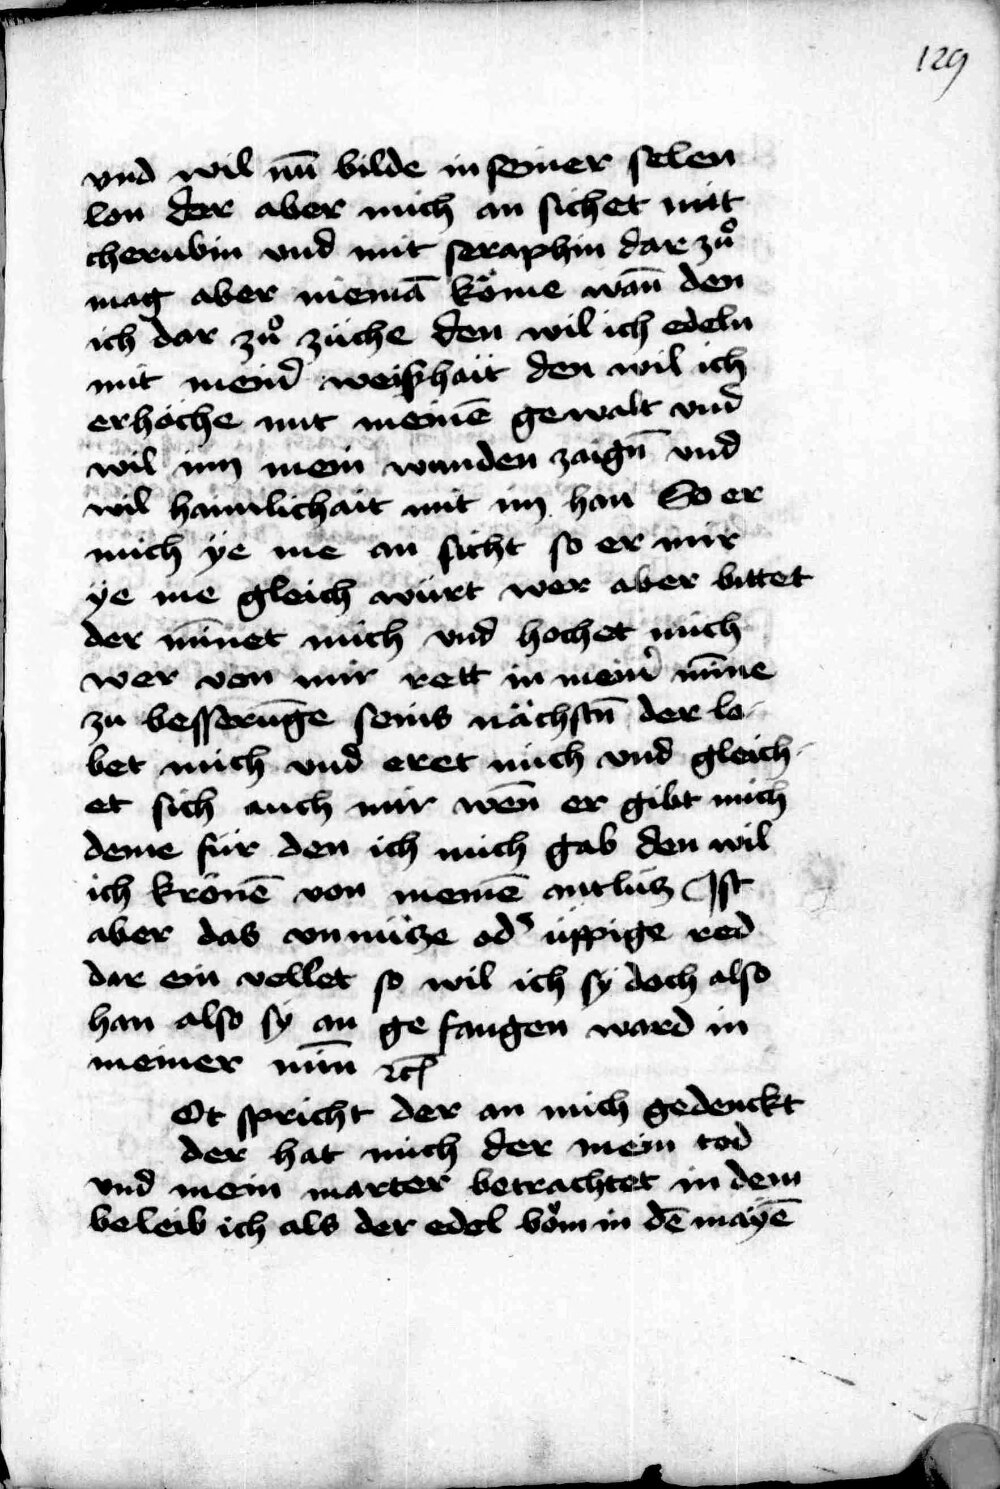 129
vnd wil nū bilde in seiner selen
lon der aber mich an sichet mit
cherubin vnd mit seraphin dar zuͦ
mag aber niemā koͤme wañ den
ich dar zuͦ züche den wil ich edeln
mit meinˀ weißhait den wil ich
erhöche mit meinē gewalt vnd
wil im mein wunden zaigñ vnd
wil haimlichait mit im han So er
mich ÿe me an sicht so er mir
ÿe me gleich würt wer aber bittet
der minet mich vnd hochet mich
wer von mir rett in meinˀ mīne
zu besserūge seins nächstñ der lo
bet mich vnd eret mich vnd gleich
et sich auch mir wen̄ er gibt mich
deme für den ich mich gab den wil
ich krönē von meinē antlütz Ist
aber das vnnütze odˀ üppige red
dar ein vellet so wil ich sÿ doch also
han also sÿ an ge fangen ward in
meiner min̄ ꝛc
Ot spricht der an mich gedenckt
der hat mich der mein tod
vnd mein marter betrachtet in dem
beleib ich als der edel boͮm in dē mayē